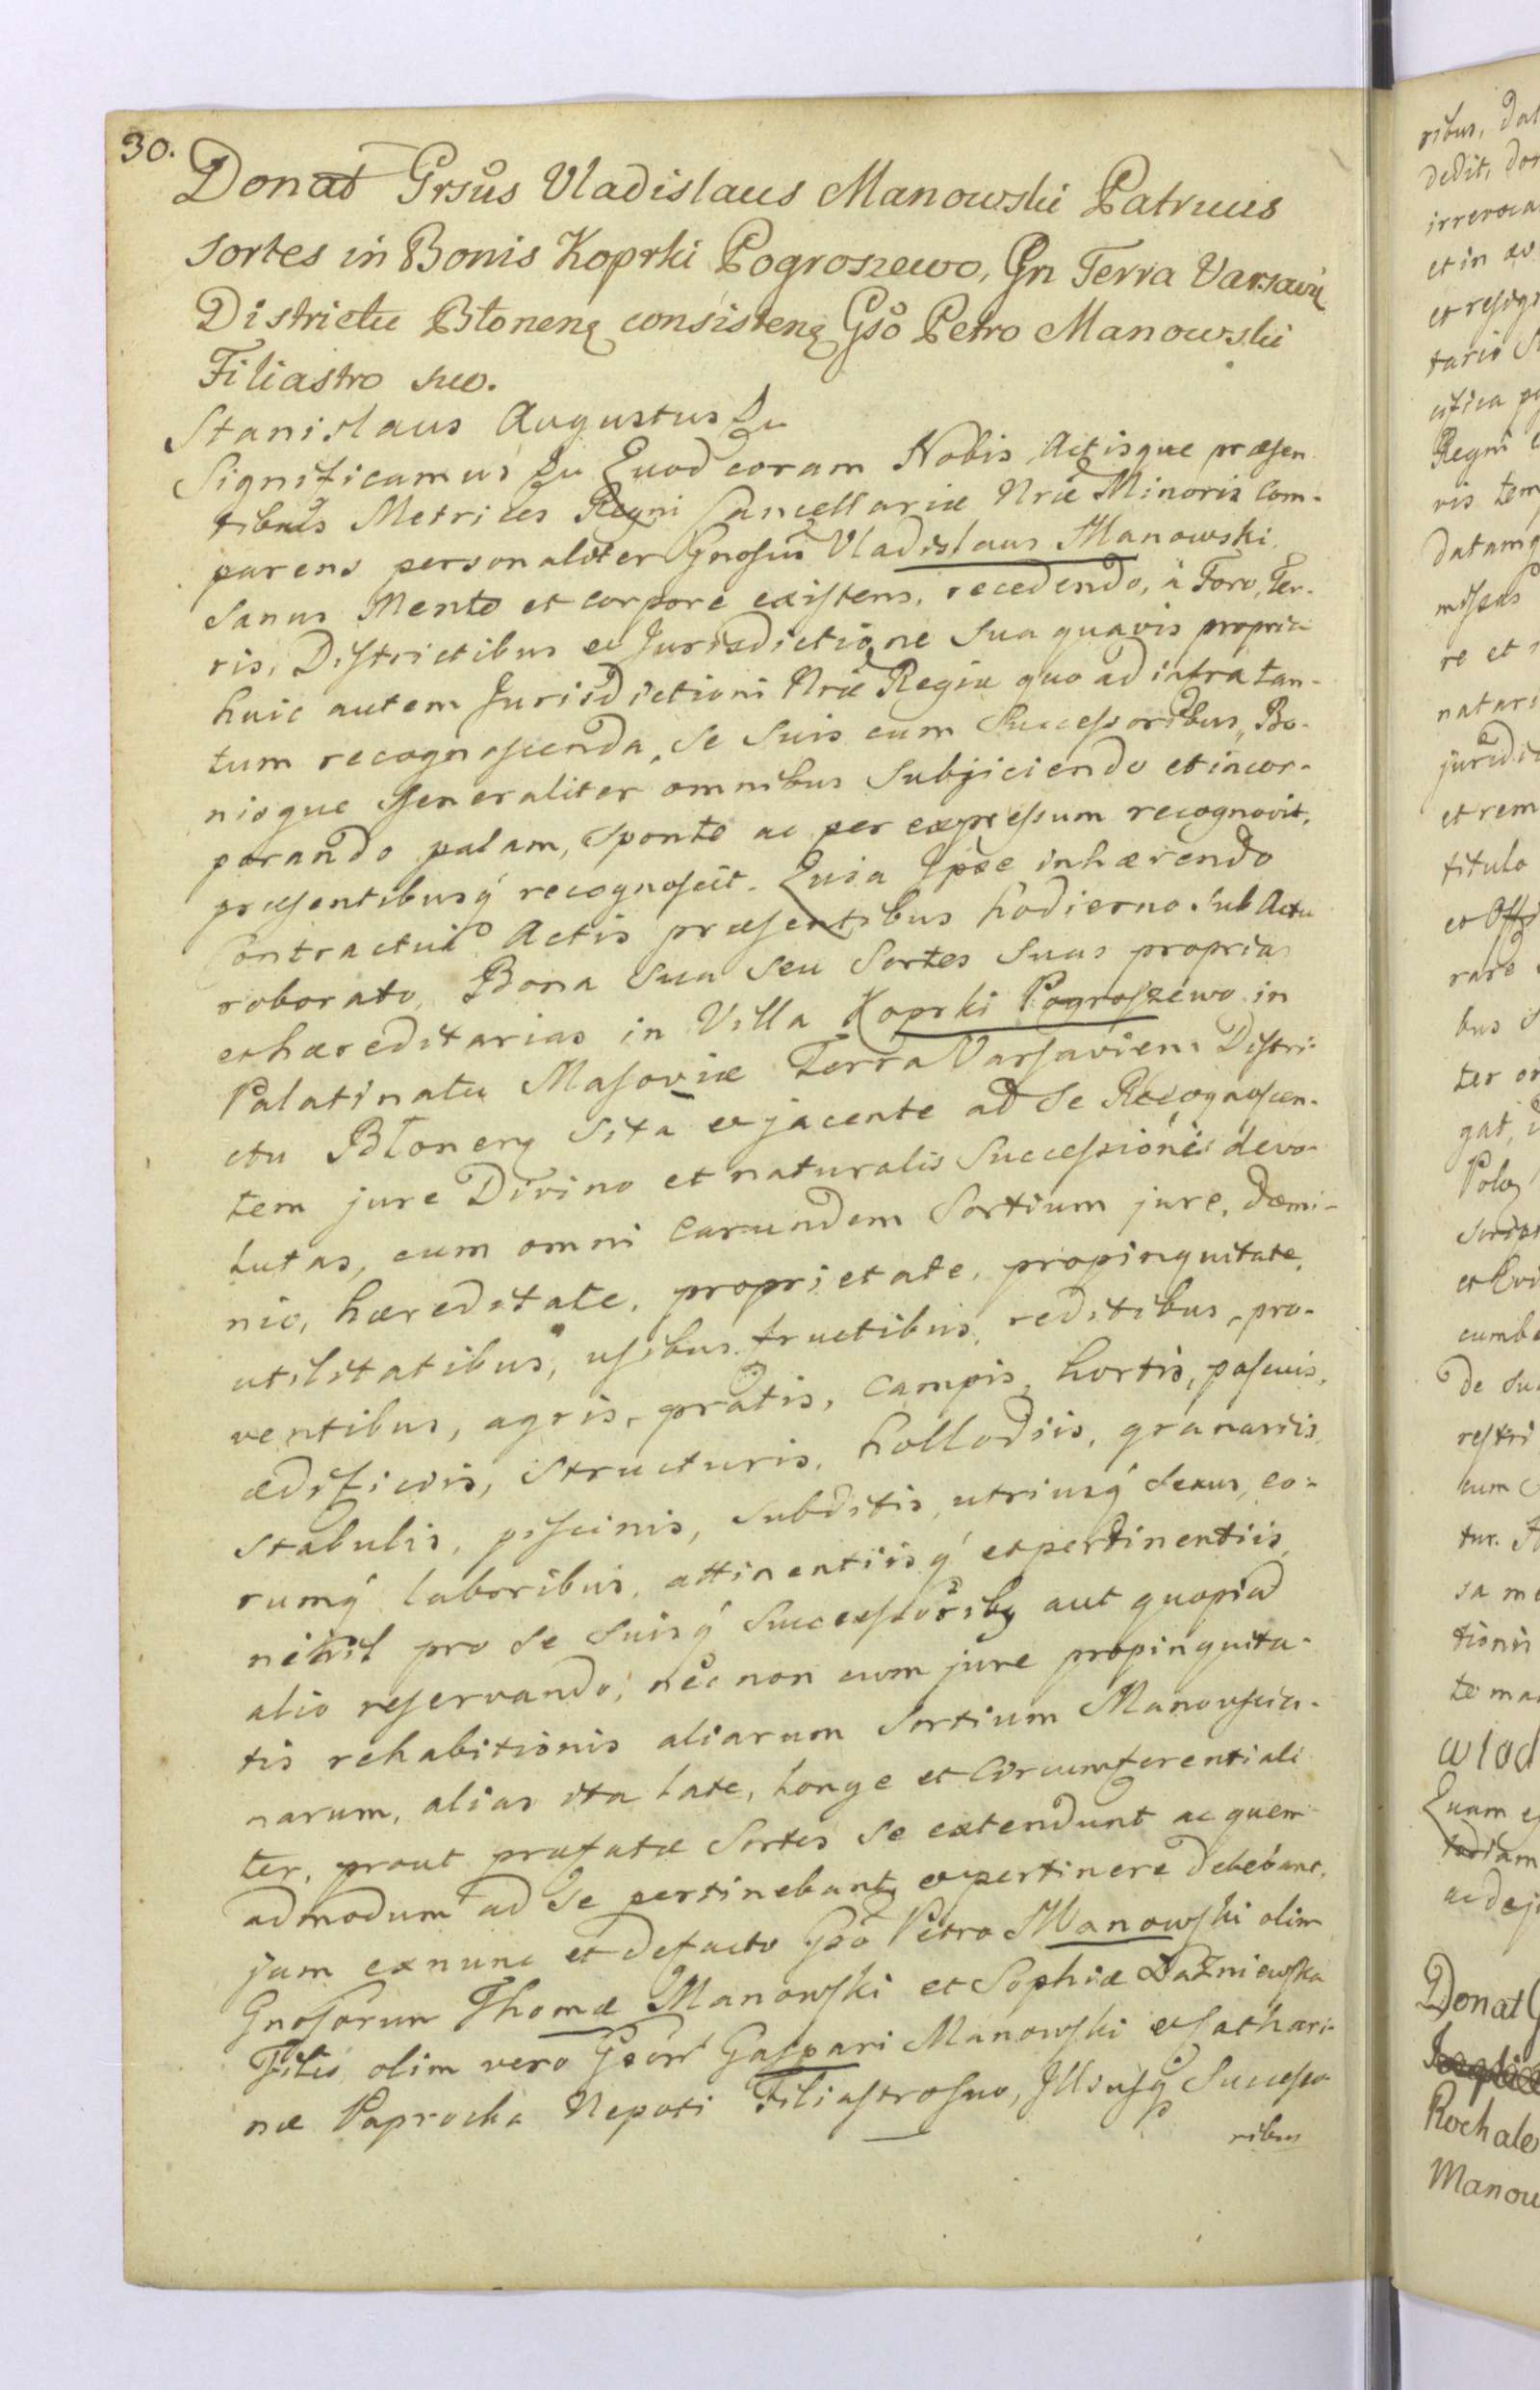 30.
Donat Grsus Vladislaus Manowski Patruus
sortes in Bonis Koprki Pogroszewo, Gn Terra Varsavien
Districtu Błonenę consistenę Gso Petro Manowski
Filiastro suo.
Stanislaus Augustus &c
Significamus &c Quod coram Nobis Actisque præsen
tibus Metrices Regni Cancellariæ Nræ Minoris Com-
parens personaliter Gnosus Vladislaus Manowski
Sanus Mente et corpore existens, recedendo, à Foro, Ter-
ris, Districtibus et Jurisdictione Sua quavis propria
huic autem Jurisdictioni Nræ Regiæ quo ad infra tan-
tum recognoscenda, Se Suis cum Successoribus, Bo-
nisque Generaliter omnibus Subjiciendo et incor-
porando palam, sponte ac per expressum recognovit,
præsentibusq recognoscit. Quia Ipse inhærendo
Contractui Actis præsentibus hodierno Sub Actu
roborato, Bona Sua Seu Sortes Suas proprias
et hæreditarias in Villa Koprki Pogroszewo in
Palatinatu Masoviæ Terra Varsavien Distri-
ctu Błonenę Sita et jacente ad Se Recognoscen-
tem jure Divino et naturalis Successionis devo-
lutas, cum omni earundem Sortium jure, Domi-
nio, hæreditate, proprietate, propinquitate,
utilitatibus, usibus fructibus, reditibus, pro-
ventibus, agris, pratis, campis, hortis, pascuis,
ædificiis, structuris, hollodiis, granariis
stabulis, piscinis, Subditis, utriusq Sexus, eo-
rumq laboribus, attinentiisq et pertinentiis
nihil pro Se Suisq Successoribq aut quopiad
alio reservando, nec non cum jure propinquita-
tis rehabitionis aliarum Sortium Manowscia-
narum, alias ita late, longe et Circumferentiali
ter, prout præfatæ Sortes Se extendunt ac quem
admodum ad Se pertinebant et pertinere debebant,
jam exnunc et defacto Gso Petro Manowski olim
Gnosorum Thomæ Manowski et Sophiæ Dażniewska
Filio olim vero Gsorũ Gaspari Manowski et Cathari-
næ Paprocka Nepoti Filiastro Suo, Illiusq Successo
ribus
ribus, dat
dedit, don
irrevoca
et in
et resign
tario
Regni
ris tem
datamq
re et
juridic
et rem
titulo
et Offi
rare
bus
ter
gat,
et Evi
cumbe
De
restri
cum
tur.
sa me
tionis
te man
wlad
Quam
Donat G
Rochale
Manow